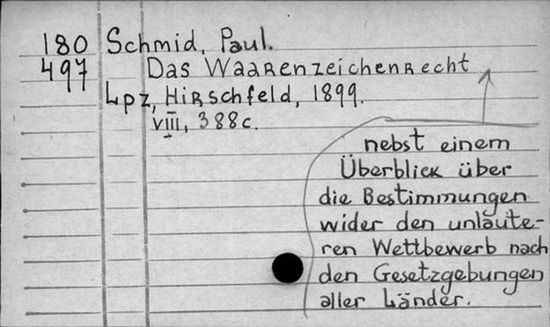 180 Schmid, Paul.
497 Das Waarenzeichenrecht
Lpz, Hirschfeld, 1899.
VIII, 388c.
nebst einem
Überblick über
die Bestimmungen
wider den unlaute-
ren Wettbewerb nach
den Gesetzgebungen
aller Länder.